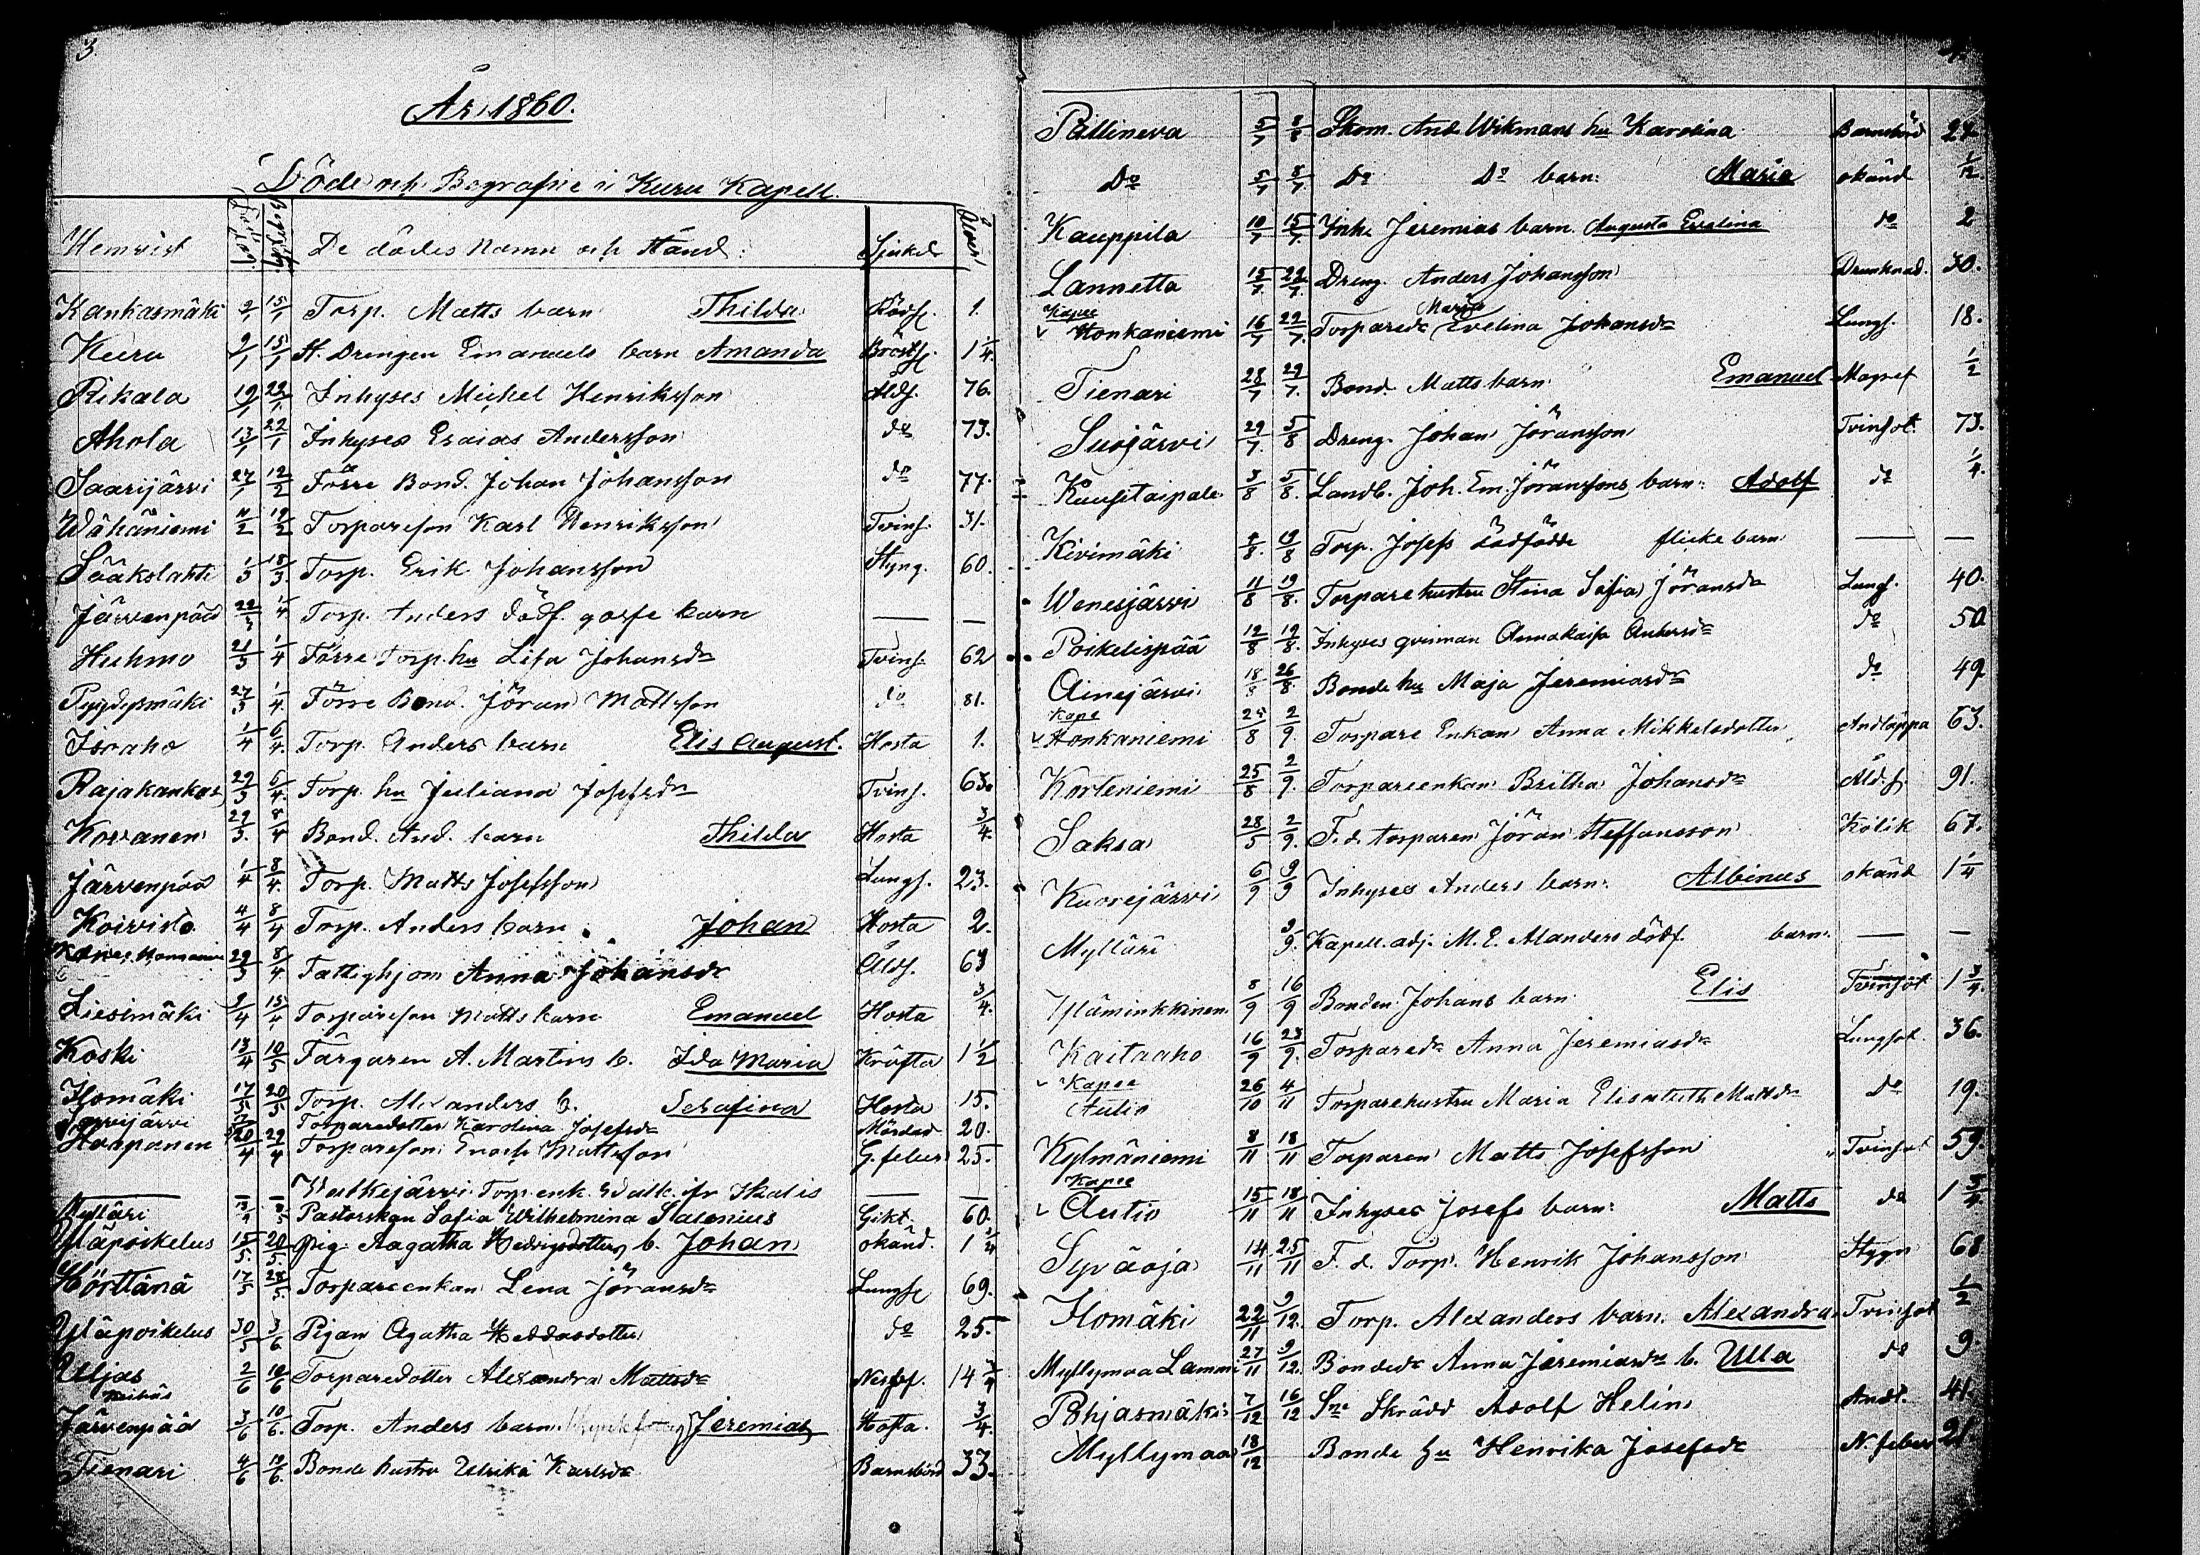 3.
År 1860.
Döde och Begrafne i Kuru Kapell.
Hemvist De dödes Namn och Stånd: Sjukd. Ålder
Kankasmäki 9/1 15/1 Torp. Matts barn Thilda Rödsf. 1.
Kuru 9/1 15/1 A. Drengen Emanuels barn Amanda Bröstf. 1 1/4.
Rikala 19/1 22/1 Inhyses Mickel Henriksson Åldf. 76.
Ahola 13/1 22/1 Inhyses Esaias Andersson do 73.
Saarijärvi 27/1 12/2 Förre Bond. Johan Johansson do 77.
Wähäniemi 11/2 19/2 Torpareson Karl Henriksson Tvins. 31.
Sääkslahti 1/3 18/3 Torp. Erik Johansson Styng. 60.
Järvenpää 22/3 1/4 Torp. Anders dödf. gosse barn — —
Huhmo 21/3 1/4 Förre Torp. hu Lisa Johansdr Tvins. 62
27/3 1/4 Förre Bond. Jöran Mattsson do 81.
Isoaho 1/4 6/4 Torp. Anders barn Elis August. Hosta 1.
Rajakankas 29/3 6/4 Torp. hu Juliana Josefsdr Tvins. 63.
Kovanen 29/3 8/4 Bond. And. barn Thilda Hosta 3/4.
Järvenpää 1/4 8/4 Torp. Matts Josefsson Lungs. 23.
Koivisto 4/4 8/4 Torp. Anders barn Johan Hosta 2.
29/3 8/4 Fattighjon Anna Johansdr Åldf. 63
Liesimäki 9/4 15/4 Torpareson Matts barn Emanuel Hosta 3/4.
Koski 13/4 10/5 Färgaren A. Martins b. Ida Maria Kräfta 1 1/2
Ilomäki 17/5 20/5 Torp. Alexanders b. Serafina Hosta 15.
Torparedotter Karolina Josefsdr Mördad 20.
Haapanen 20/4 29/4 Torpareson Enoch Mattsson G. feber 25.
Valkejärvi Torp. enk.
Mylläri Pastorskan Sofia Wilhelmina Salenius Gikt. 60.
Yläpoikelus 15/5 20/5 Pig. Aagatha Hedvigsdotters b. Johan okänd. 1 3/4
Hörttänä 17/5 28/5 Torpareenkan Lena Jöransdr Lungsf 69.
Yläpoikelus 30/5 3/6 Pigan Agatha Heddasdotter do 25.
Uljas 2/6 10/6 Torparedotter Alexandra Mattsdr Nerff. 14 3/4
Järvenpää 3/6 10/6. Torp. Anders barn Jeremias Hosta. 3/4.
Tienari 4/6 10/6 Bonde hustru Ulrika Karlsdr Barnsbörd 33.
4.
Pällineva 5/7 8/7 Skom. And. Wikmans hu Karolina Barnsbörd 27
Do 5/7 8/7 Do Do barn: Maria okänd 1/12
Kauppila 10/7 15/7. Inh. Jeremias barn. Augusta Evelina do 2
Lannetta 15/7. 22/7. Dreng. Anders Johansson Drunknad. 30.
Maria
Kapee
v Honkaniemi 16/7 22/7. Torparedr Evelina Johansdr Lungs. 18.
Tienari 28/7 29/7. Bond. Matts barn Emanuel Magref 1/2
Suojärvi 29/7. 5/8 Dreng. Johan Jöransson Tvinsot. 73.
Kuusitaipale 3/8 5/8. Landb. Joh. Em. Jöranssons barn: Adolf do 1/4.
Kivimäki 9/8. 19/8 Torp. Josefs dödfödde flicke barn — —
Wenejärvi 11/8 19/8. Torparehustru Stina Sofia Jöransdr Lungs. 40.
Poikelispää 12/8 19/8. Inhyses qvinnan Annakaisa Andersdr do 50
Ainejärvi 18/8 26/8. Bonde hu Maja Jeremiasdr do 49
Kape
v Honkaniemi 25/8 2/9. Torpare Enkan Anna Mikkelsdotter Andtäppa 63.
Korteniemi 25/8 2/9. Torpareenkan Britha Johansdr Åld. f. 91.
Saksa 28/5 2/9. F. d. torparen Jöran Steffansson Kolik 67.
Kuorejärvi 6/9 9/9 Inhyses Anders barn: Albinus okänd 1 1/4
Mylläri 9/9. Kapell. adj. M. E. Alanders dödf. barn. — —
Yläminkkinen 8/9 16/9 Bonden Johans barn Elis Tvinsot 1 3/4.
Kaitaaho 16/9 23/9. Torparedr Anna Jeremiasdr Lungsot. 36.
v Kapee
Autio 26/10 4/11 Torparehustru Maria Elisabeth Mattsdr do 19.
Kylmäniemi 8/11 18/11 Torparen Matts Josefsson Tvinsot 59.
Kapee
v Autio 15/11 18/11 Inhyses Josefs barn: Matts do 1 3/4
Syväoja 14/11 25/11 F. d. Torp. Henrik Johansson Stygn 68
Ilomäki 22/11 9/12. Torp. Alexanders barn. Alexandra Tvinsot 1/2
Myllymaa Lammi 27/11 9/12. Bondedr Anna Jeremiasdrs b. Ulla do 9.
Pohjasmäki 7/12 16/12 Sn Skrädd Adolf Helin Andt. 41.
Myllymaa 18/12 Bonde hu Henrika Josefsdr N. feber 21